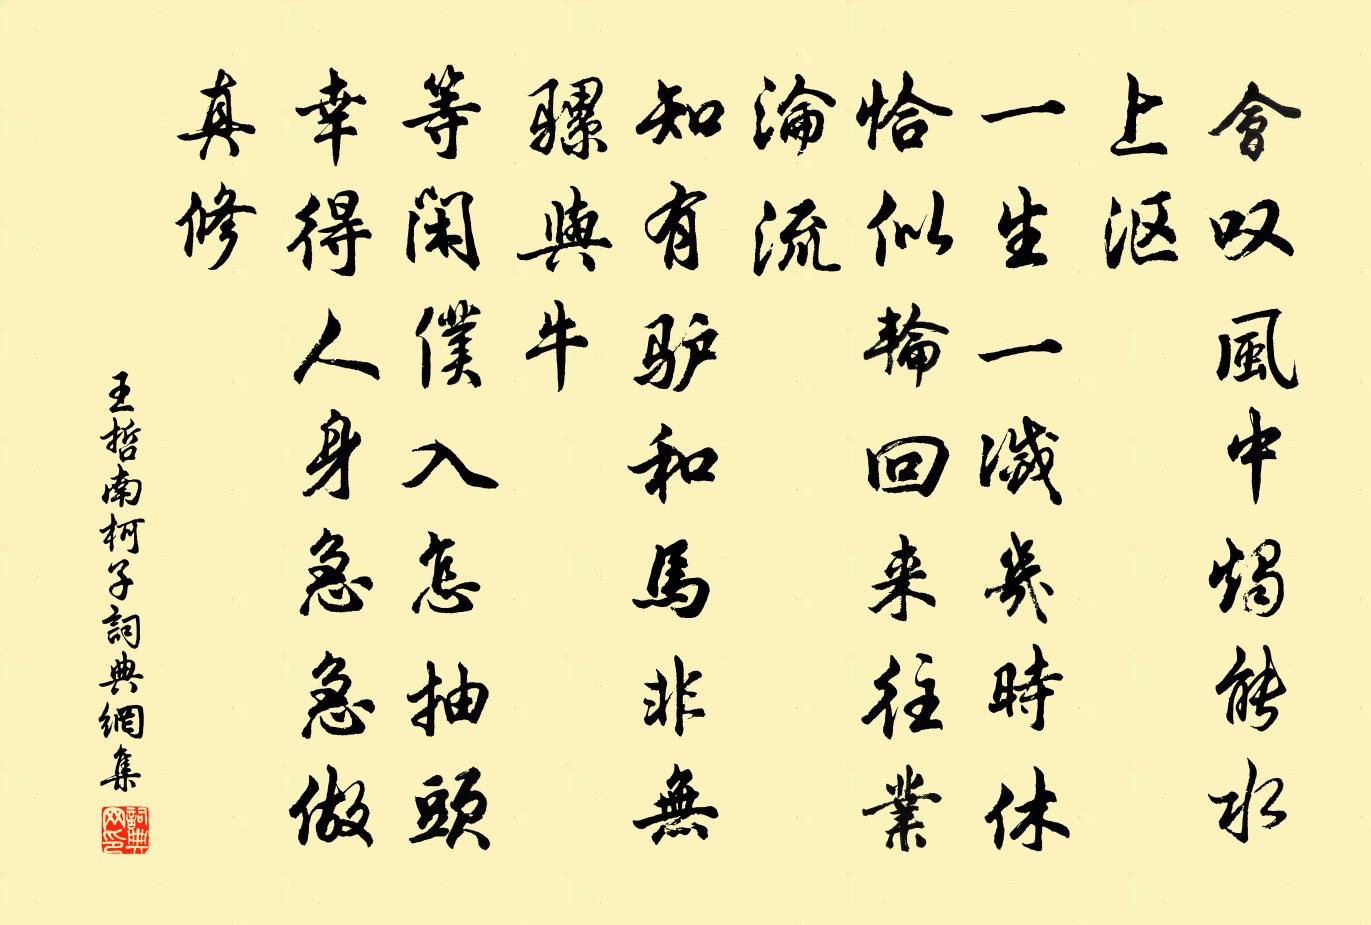 會叹風中燭能水
上沤
一生一滅幾時休
恰似輪回来往業
淪流
知有驴和馬非無
騾與牛
等閑僕入怎抽頭
幸得人身急急做
真修
王哲南柯子詞典網集
詞典
网印